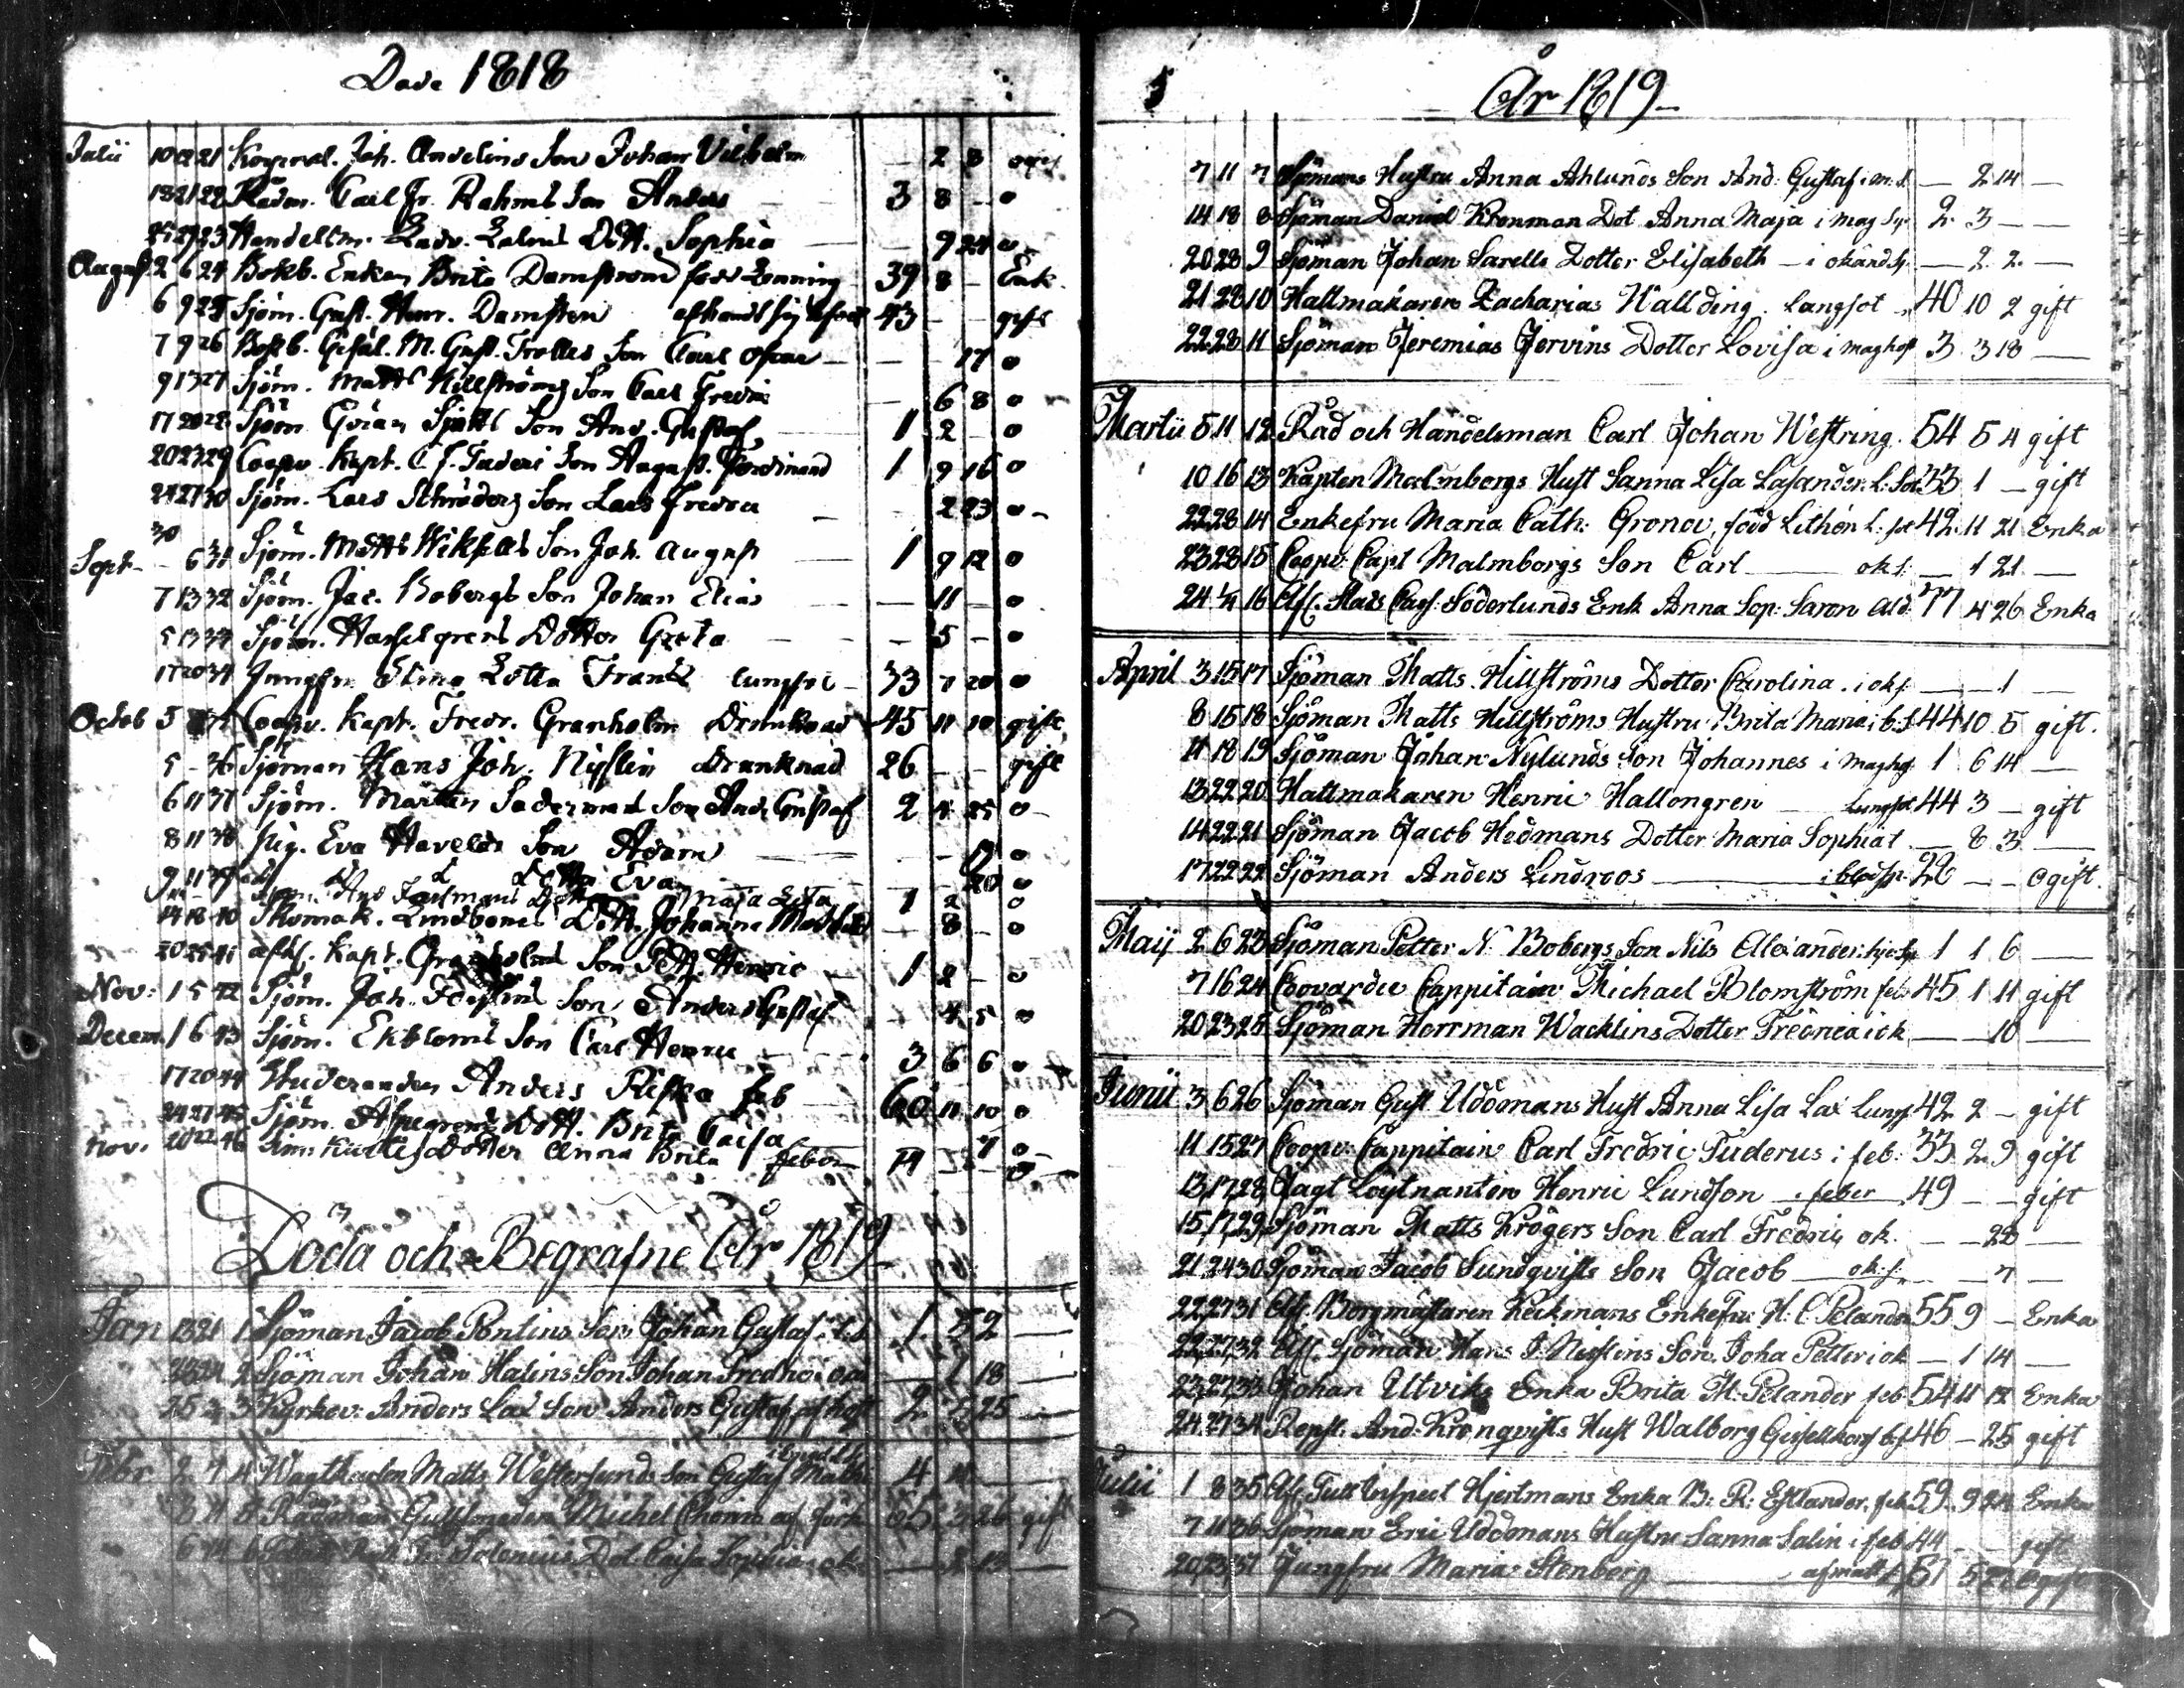 Döde 1818
Julii 10 21 21 Korporal. Joh. Anselins Son Johan Vilhelm — 2 8 ogift
18 21 22 Rådm. Carl Fr. Rahms Son Anders 3 8 — o
25 29 23 Handelsm. Sophia — 9 24 o
August 2 6 24 Bokb. Enkan Brita Damström född 39 8 — Enk.
6 9 25 Sjöm. Gust. Henr. Damsten 43 — — gift
7 9 26 Bokb. Gesäl. M. Gust. Trolles Son Carl Oscar — — 17 o
9 13 27 Sjöm. Matts Hillströms Son Carl Fredric — 6 8 o
17 20 28 Sjöm. Göran Son And. Gustaf 1 2 — o
20 23 29 Coopv. Kapt. C. F. Tuderi Son August Ferdinand 1 9 16 o
24 27 30 Sjöm. Lars Schröders Son Lars Fredric — 2 23 o
Sept. 30 6 31 Sjöm. Matts Son Joh. August 1 9 12 o
7 13 32 Sjöm. Jac. Bobergs Son Johan Elias — 11 — o
5 13 33 Sjöm. Hasselgrens Dotter Greta — 5 — o
17 20 34 Jungfru Stina Lotta Frantz lungsot 33 7 20 o
Octob 5 Coopv. Kapt. Fredr. Granholm Drunknad 45 11 10 gift
5 — 36 Sjöman Hans Joh. Nisslin drunknad 26 — — gift
6 11 37 Sjöm. Mårten Södermans Son And. Gustaf 2 4 25 o
8 11 38 Pig. Eva Havelds Son Adam — — 17 o
9 11 39 d d Dotter Eva — — 20 o
Sjöm. And. Maja Lisa 1 2 o
14 18 40 Skomak. Lindboms Dott. Johanna — 8 — o
20 25 41 afl. Kapt. Granholms Son Pett. Henric 1 2 — o
Nov: 1 5 42 Sjöm. Joh. Son Anders Gustaf — 4 5 o
Decem. 1 6 43 Sjöm. Ekbloms Son Carl Henric 3 6 6 o
17 20 44 Studeranden Anders feb 60 11 10 o
24 27 45 Sjöm. Aspegrens Dott. Brita Caisa — — 7 o
Nov. 20 22 46 Dotter Anna Brita feber 14
Döda och Begrafne År 1819
Jan 13 21 1 Sjöman Jacob Pontins Son Johan Gustaf 1 5 2 —
2 Sjöman Johan Halins Son Johan Fredric — 1 18 —
25 3 Kyrkov. Anders Lax Son Anders Gustaf af host 2 5 25 —
Febr 2 7 4 Wagtkarlen Matts Westersunds Son Gustaf 4 11 —
5 Rådman Gullsmeden Michel Choræus 65 3 26 gift
6 14 6 Solonius Dot. Caisa Sophia — 13 —
År 1819
7 11 7 Sjömans Hustru Anna Ahlunds Son And: Gustaf — 2 14 —
14 18 8 Sjöman Daniel Kronman Dot Anna Maja i mag Sj. 2 3 — —
20 28 9 Sjöman Johan Sarells Dotter Elisabeth — i okänd Sj. — 2 2 —
21 28 10 Hattmakaren Zacharias Hällding. lungsot 40 10 2 gift
22 28 11 Sjöman Jeremias Jervins Dotter Lovisa i maghost 3 3 18 —
Martii 5 11 12 Råd och Handelsman Carl Johan Westring. 54 5 4 gift
10 16 13 Kapten Malmborgs Hust Sanna Lisa Lasander. L. Sot 33 1 — gift
22 28 14 Enkefru Maria Cath: Gronov, född Lithén L: sot 42 11 21 Enka
23 28 15 Coopv: Capt Malmborgs Son Carl — ok s. — 1 21 —
24 1/4 16 Afl. Stads Söderlunds Enk Anna Sop: Saron Åld. 77 4 26 Enka
April 3 15 17 Sjöman Matts Hillströms Dotter Carolina. i ok s. — — 1 —
8 15 18 Sjöman Matts Hillströms Hustru Brita Maria i b. s 44 10 5 gift.
11 18 19 Sjöman Johan Nylunds Son Johannes i maghost 1 6 14 —
13 22 20 Hattmakaren Henric Hallongren — lungsot 44 3 — gift
14 22 21 Sjöman Jacob Hedmans Dotter Maria Sophia — 8 3 —
17 22 22 Sjöman Anders Lindroos — i blodsp. 28 — — Ogift.
Maij 2 6 23 Sjöman Petter N: Bobergs Son Nils Alexander 1 1 6 —
7 16 24 Coovardie Cappitain Michael Blomström feb: 45 1 11 gift
20 23 25 Sjöman Herrman Wacklins Dotter Fredrica i ok — — 10 —
Junii 3 6 26 Sjöman Gust Uddmans Hust Anna Lisa Lax Lungs 42 2 — gift
11 15 27 Coopv: Cappitain Carl Fredric Tuderus i feb: 33 2 9 gift
13 17 28 Jagt Löjtnanten Henric Lundson — i feber 49 — — gift
15 17 29 Sjöman Matts Krögers Son Carl Fredric ok. — — 28 —
21 24 30 Sjöman Jacob Sundqvists Son Jacob — ok: s. — — 7 —
22 27 31 Afl. Borgmästaren Keckmans Enkefru H: C. Pelander 55 9 — Enka
22 27 32 Afl. Sjöman Hans J. Nisslins Son Joha Petter i ok — 1 14 —
23 27 33 Johan Utviks Enka Brita H: Pelander feb 54 11 12 Enka
24 27 34 Repsl. And: Kronqvists Hust Walborg b. s 46 — 25 gift
Julii 1 8 35 Afl. Tull Inspect Hjertmans Enka B: R: Estlander. feb 59 9 24 Enka
7 11 36 Sjöman Eric Uddmans Hustru Sanna Salin i feb 44 — — gift
20 23 37 Jungfru Maria Stenberg — af matt 67 5